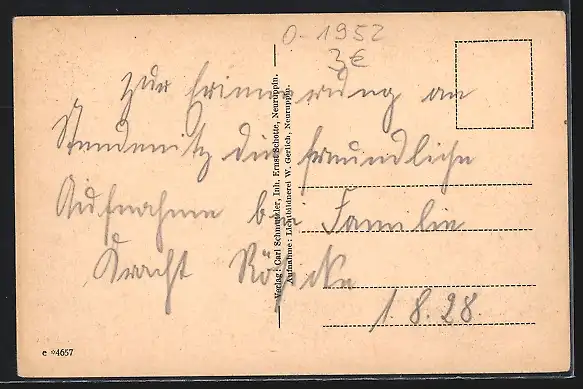 0-1952
3€
zur Erinnerung an
Stendenitz die freundliche
Aufnahme bei Familie
Kracht
1.8.28.
Verlag: Carl Schmückler, Inh. Ernst Schotte, Neuruppin.
Aufnahme: Lichtbildnerei W. Gerlich, Neuruppin.
e *4657